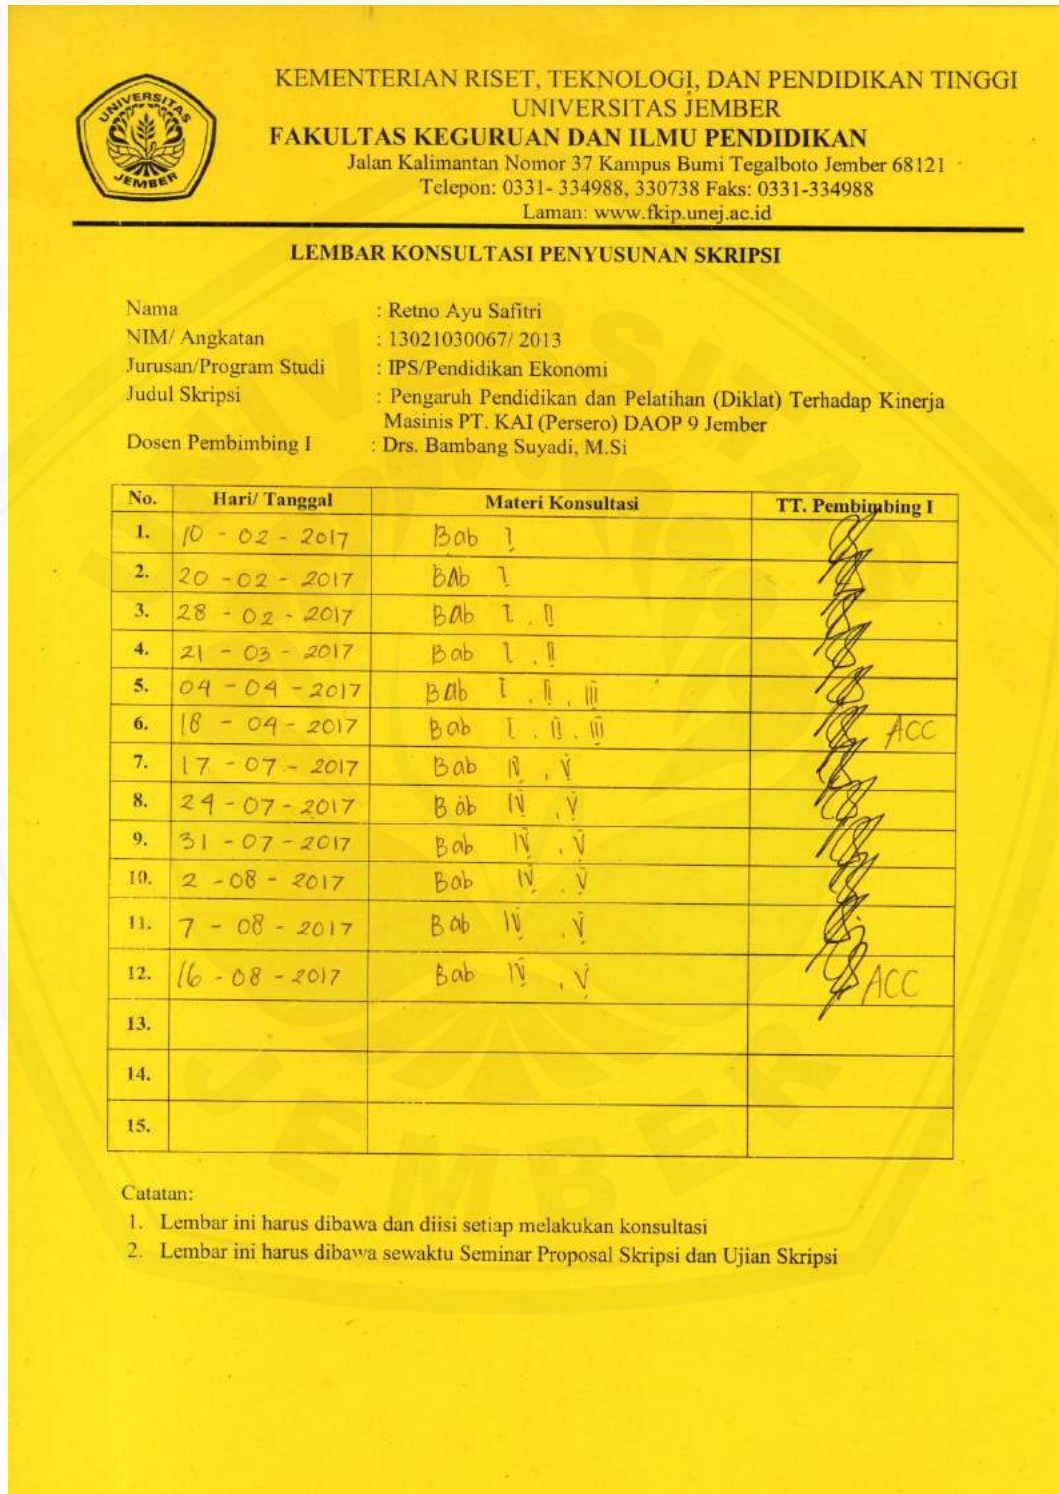 UNIVERSITAS
JEMBER
KEMENTERIAN RISET, TEKNOLOGI, DAN PENDIDIKAN TINGGI
UNIVERSITAS JEMBER
FAKULTAS KEGURUAN DAN ILMU PENDIDIKAN
Jalan Kalimantan Nomor 37 Kampus Bumi Tegalboto Jember 68121
Telepon: 0331- 334988, 330738 Faks: 0331-334988
Laman: www.fkip.unej.ac.id
LEMBAR KONSULTASI PENYUSUNAN SKRIPSI
Nama : Retno Ayu Safitri
NIM/ Angkatan : 13021030067/ 2013
Jurusan/Program Studi : IPS/Pendidikan Ekonomi
Judul Skripsi : Pengaruh Pendidikan dan Pelatihan (Diklat) Terhadap Kinerja
Masinis PT. KAI (Persero) DAOP 9 Jember
Dosen Pembimbing I : Drs. Bambang Suyadi, M.Si
No. Hari/ Tanggal Materi Konsultasi TT. Pembimbing I
1. 10 - 02 - 2017 Bab I
2. 20 - 02 - 2017 BAb I
3. 28 - 02 - 2017 BAb I , II
4. 21 - 03 - 2017 Bab I , II
5. 04 - 04 - 2017 BAb I , II , III
6. 18 - 04 - 2017 Bab I , II , III ACC
7. 17 - 07 - 2017 Bab IV , V
8. 24 - 07 - 2017 Bab IV , V
9. 31 - 07 - 2017 Bab IV , V
10. 2 - 08 - 2017 Bab IV , V
11. 7 - 08 - 2017 Bab IV , V
12. 16 - 08 - 2017 Bab IV , V ACC
13.
14.
15.
Catatan:
1. Lembar ini harus dibawa dan diisi setiap melakukan konsultasi
2. Lembar ini harus dibawa sewaktu Seminar Proposal Skripsi dan Ujian Skripsi